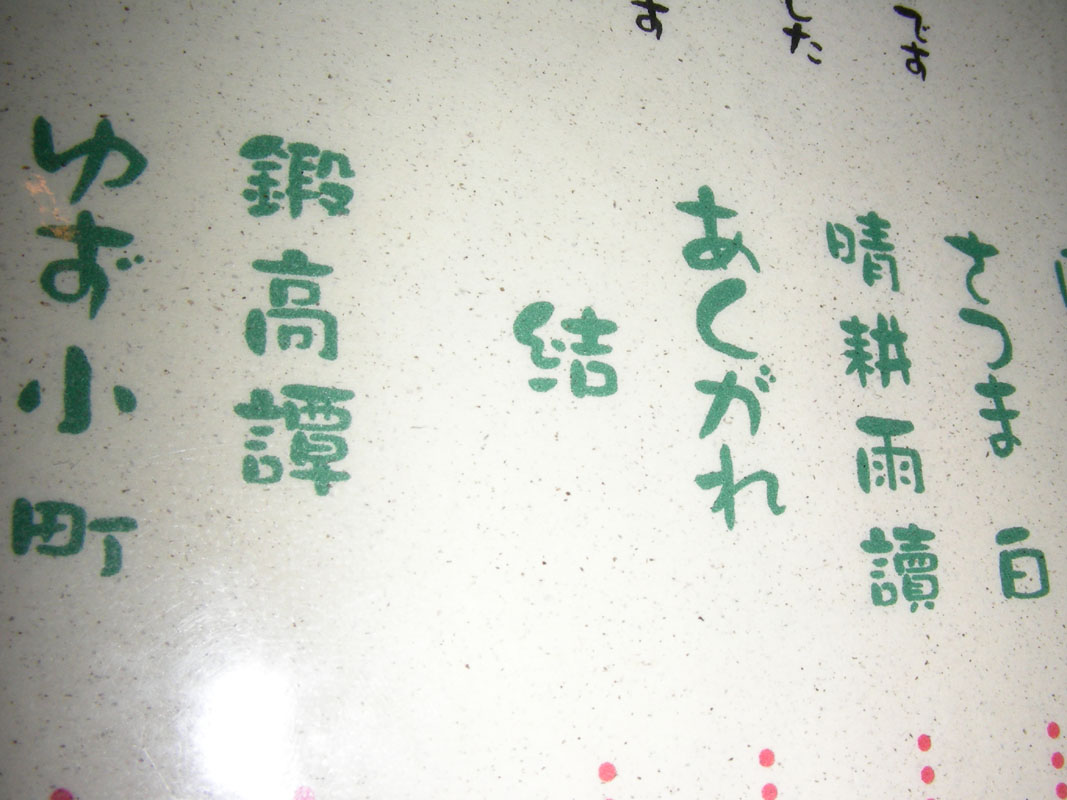 です
した
す
さつま 白
晴耕雨讀
あくがれ
結
鍛高譚
ゆず小町